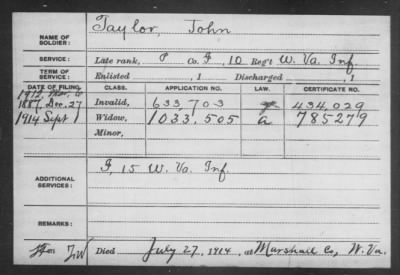 NAME OF SOLDIER: Taylor, John
SERVICE: Late rank, P Co. F, 10 Reg't W. Va. Inf.
TERM OF SERVICE: Enlisted , 1 Discharged , 1
DATE OF FILING. CLASS. APPLICATION NO. LAW. CERTIFICATE NO.
1912,
1887, Dec. 27 Invalid, 633,703 434,029
1914 Sept 1 Widow, 1033,505 a 785279
Minor,
ADDITIONAL SERVICES: F, 15 W. Va. Inf.
REMARKS:
Died July 27, 1914, at Marshall Co, W. Va.